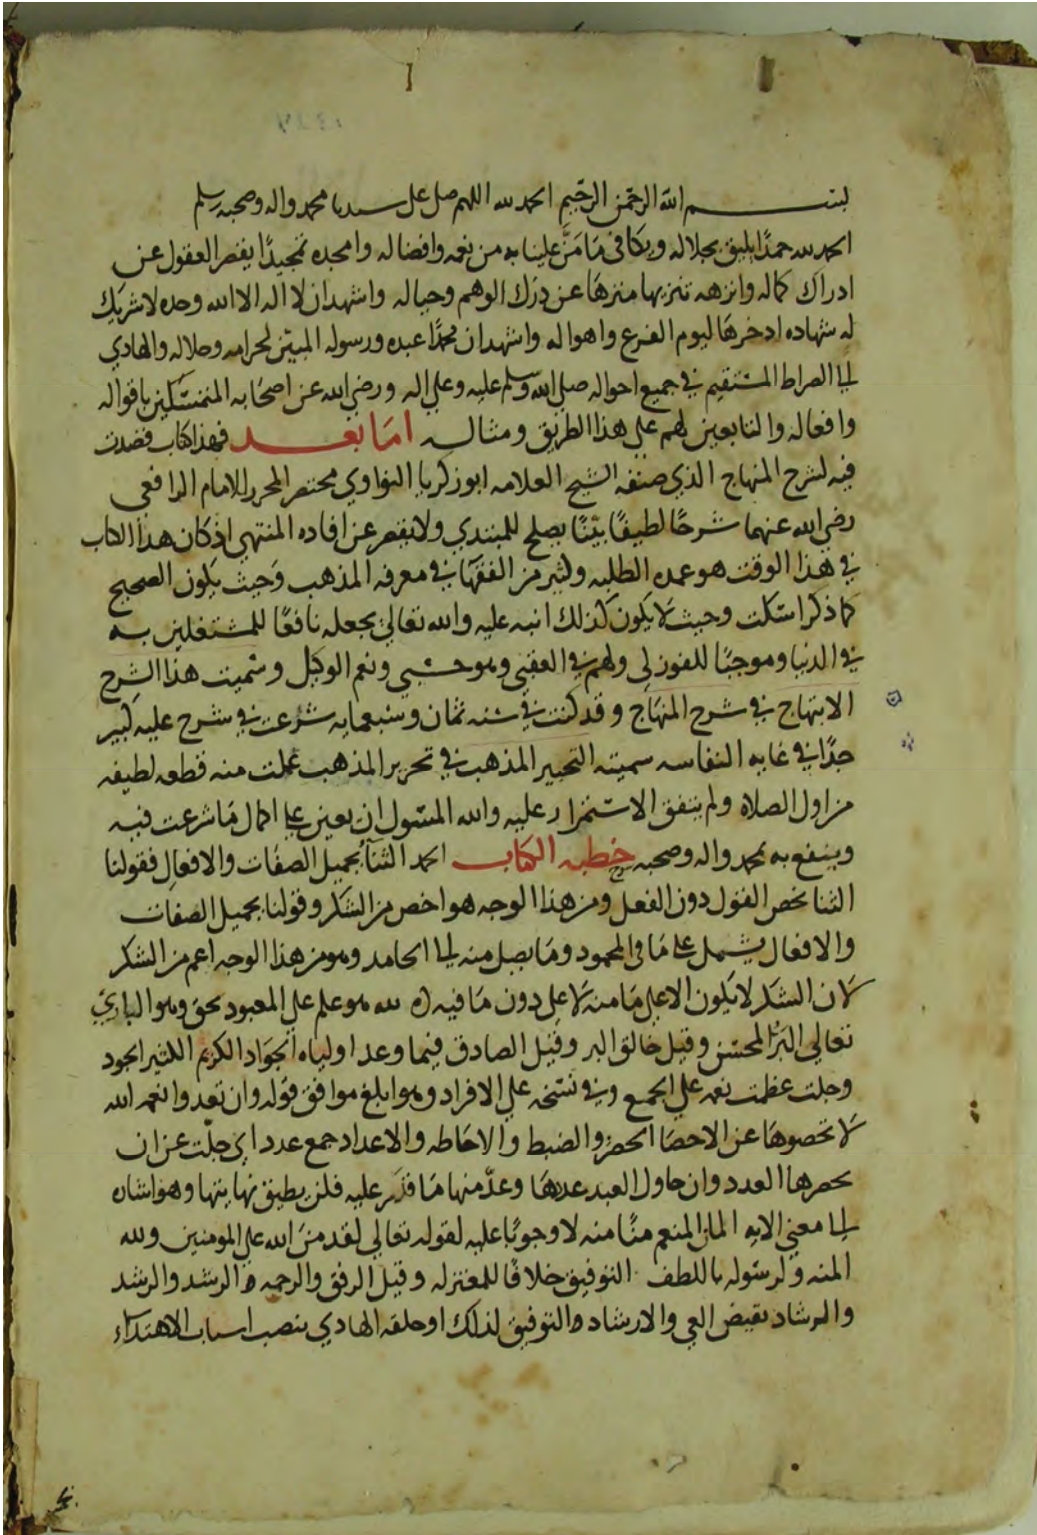 بسم الله الرحمن الرحيم الحمد لله اللهم صل على سيدنا محمد واله وصحبه وسلم
الحمد لله حمدًا يليق بجلاله ويكافى مَا مَنَّ علينا به من نعمه وافضاله وامجده تمجيدًا يقصر العقول عن
ادراك كماله وانزهه تنزيها منزهَا عن درَك الوهم وخياله واشهد ان لا اله الا الله وحده لا شريك
له شهاده ادخرهَا ليوم الفزع واهواله واشهد ان محمدًا عبده ورسوله المبيّن لحرامه وحلاله والهادي
الي الصراط المستقيم في جميع احواله صلي الله وسلم عليه وعلي اله ورضي الله عن اصحَابه المتمسّكين باقواله
وافعاله والتابعين لهم علي هذا الطريق ومثاله امَا بعد فهذا كتاب قصدت
فيه لشرح المنهاج الذي صنفه الشيخ العلامه ابو زكريا النواوي مختصر المحرر للامام الرافعي
رضي الله عنهما شرحًا لطيفًا بيّنًا يصلح للمبتدي ولا يقصر عن افاده المنتهي اذ كان هذا الكتاب
في هذا الوقت هو عمده الطلبه وكثير من الفقهَا في معرفه المذهب وَحيث يكون الصحيح
كما ذكر اسكت وحيث لا يكون كذلك انبه عليه والله تعالي يجعله نافعًا للمشتغلين به
في الدنيا وموجبًا للفوز لي ولهم في العقبي وهو حسبي ونعم الوكيل وسميت هذا الشرح
الابتهاج في شرح المنهَاج وقد كنت في سنه ثمان وسبعمايه شرَعت في شرح عليه كبير
جدًا في غايه النفاسه سميته التحبير المذهب في تحرير المذهب عملت منه قطعه لطيفه
من اول الصلاه ولم يتفق الاستمرار عليه والله المسؤل ان يعين علي اكمال مَا شرعت فيه
وينفع به بمحمد واله وصحبه خطبه الكتاب الحمد الثنآ بجميل الصفَات والافعالِ فقولنا
الثنا يخص القول دون الفعل ومن هذا الوجه هو اخص من الشكر وقولنا بجميل الصفات
والافعال يشمل علي مَا في المحمود ومَا يصل منه الي الحامد وهو من هذا الوجه اعم من الشكر
لان الشكر لا يكون الا علي مَا منه لا علي دون مَا فيه لله هو علم علي المعبود بحق وهو الباري
تعالي البَرّ المحسن وقيل خالق البر وقيل الصادق فيما وعد اولياه الجوَاد الكريم الكثير الجود
وجلت عظمت نعمه علي الجمع وفي نسخه علي الافراد وهو ابلغ موافق قوله وان تعدوا نعمه الله
لا تحصوهَا عن الاحصَا الحصر والضبط والاحَاطه والاعداد جمع عدد اي جلّت عن ان
يحصرها العدد وان حاول العبد عدهَا وعدَّ منها مَا قدَر عليه فلن يطيق نهايتها وهو اشاره
الي معني الايه المانّ المنعم منًا منه لا وجوبًا عليه لقوله تعالي لقد منَ الله علي المومنين ولله
المنه ولرسوله باللطف التوفيق خلافًا للمعتزله وقيل الرفق والرحمه والرشد والرشد
والرشاد نقيض الغي والارشاد والتوفيق لذلك او خلقه الهادي بنصب اسباب الاهتدَاء